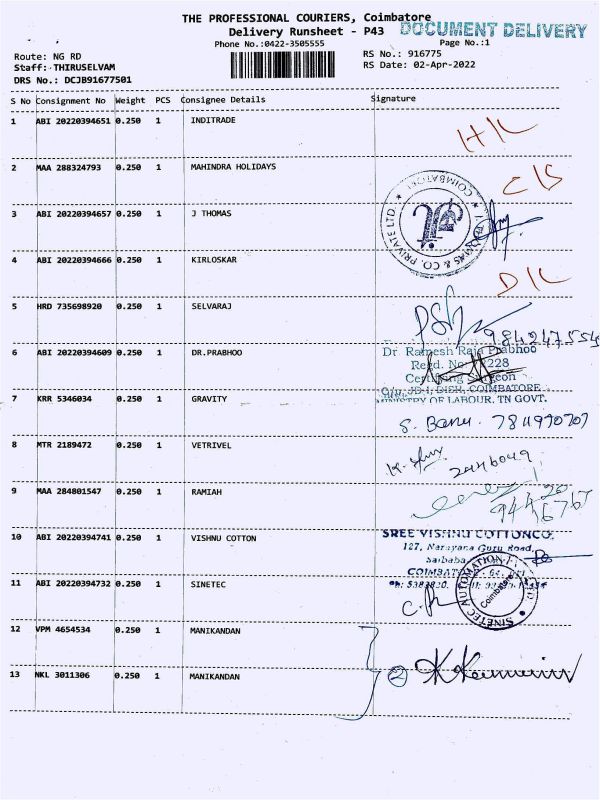 THE PROFESSIONAL COURIERS, Coimbatore
Delivery Runsheet - P43
DOCUMENT DELIVERY
Phone No.:0422-3505555
Page No.:1
Route: NG RD
RS No.: 916775
Staff: THIRUSELVAM
RS Date: 02-Apr-2022
DRS No.: DCJB91677501
S No Consignment No Weight PCS Consignee Details Signature
1 ABI 20220394651 0.250 1 INDITRADE
2 MAA 288324793 0.250 1 MAHINDRA HOLIDAYS
3 ABI 20220394657 0.250 1 J THOMAS
COIMBATORE
& CO. PRIVATE LTD.
4 ABI 20220394666 0.250 1 KIRLOSKAR
5 HRD 735698920 0.250 1 SELVARAJ
9842247554
6 ABI 20220394609 0.250 1 DR.PRABHOO
Dr. Ramesh Raja Prabhoo
Certifying Surgeon
COIMBATORE
MINISTRY OF LABOUR, TN GOVT.
7 KRR 5346034 0.250 1 GRAVITY
S. Banu. 7811970707
8 MTR 2189472 0.250 1 VETRIVEL
2446049
9 MAA 284801547 0.250 1 RAMIAH
10 ABI 20220394741 0.250 1 VISHNU COTTON
SREE VISHNU COTTON CO.
127, Narayana Guru Road,
Saibaba
11 ABI 20220394732 0.250 1 SINETEC
SINETEC AUTOMATION
Coimbatore
12 VPM 4654534 0.250 1 MANIKANDAN
13 NKL 3011306 0.250 1 MANIKANDAN
2